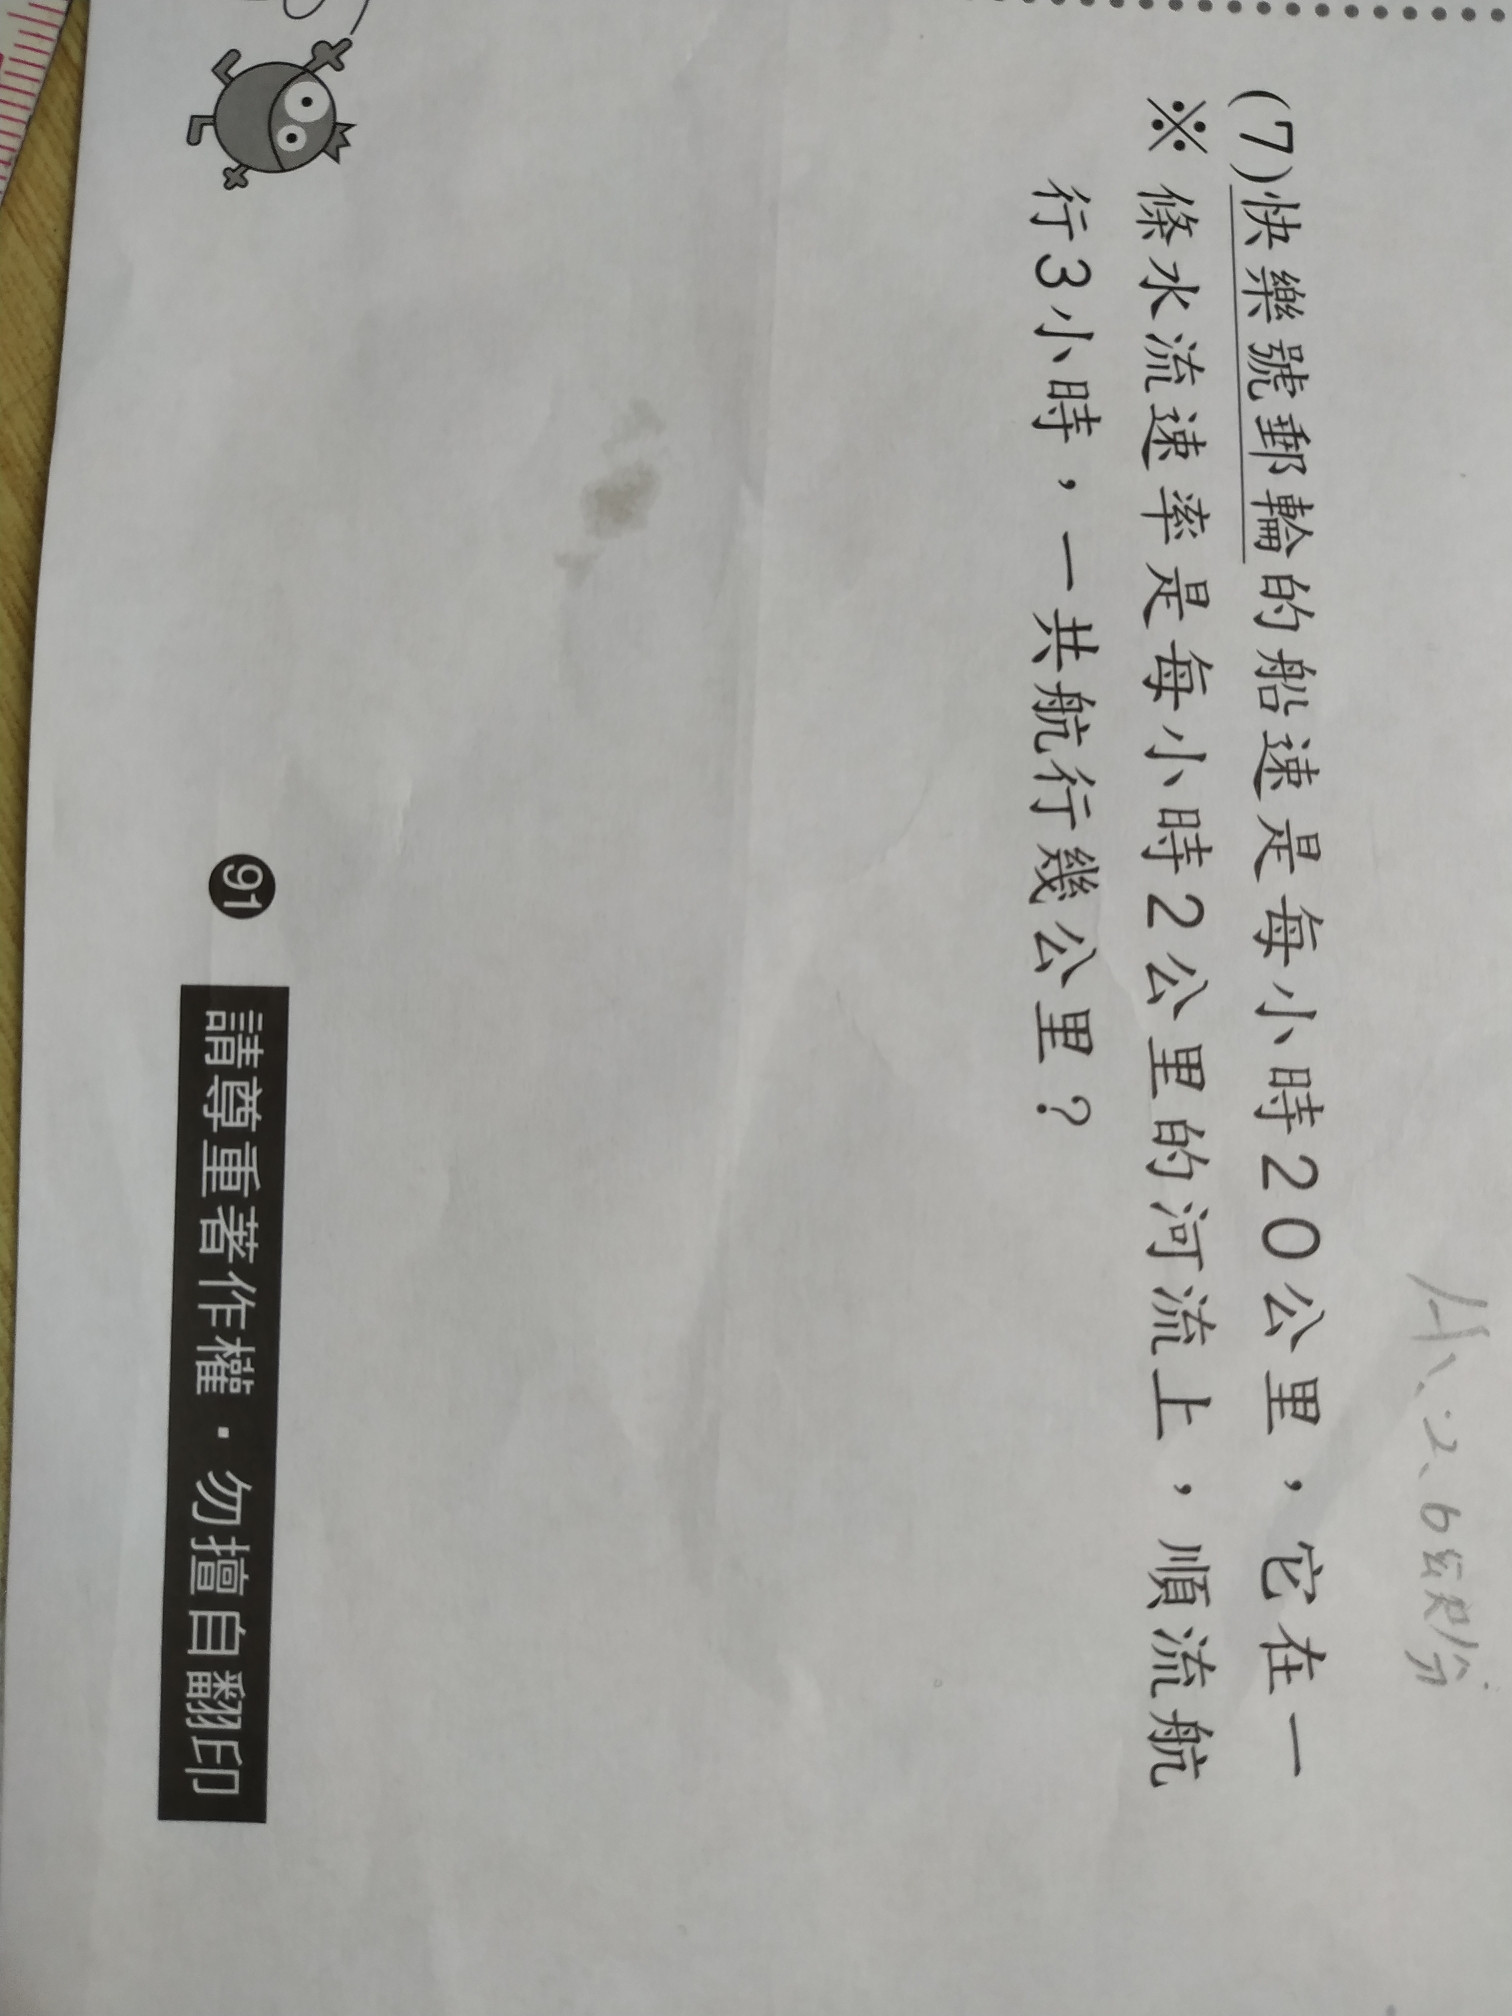 (7)快樂號郵輪的船速是每小時20公里，它在一
※條水流速率是每小時2公里的河流上，順流航
行3小時，一共航行幾公里？
91 請尊重著作權・勿擅自翻印